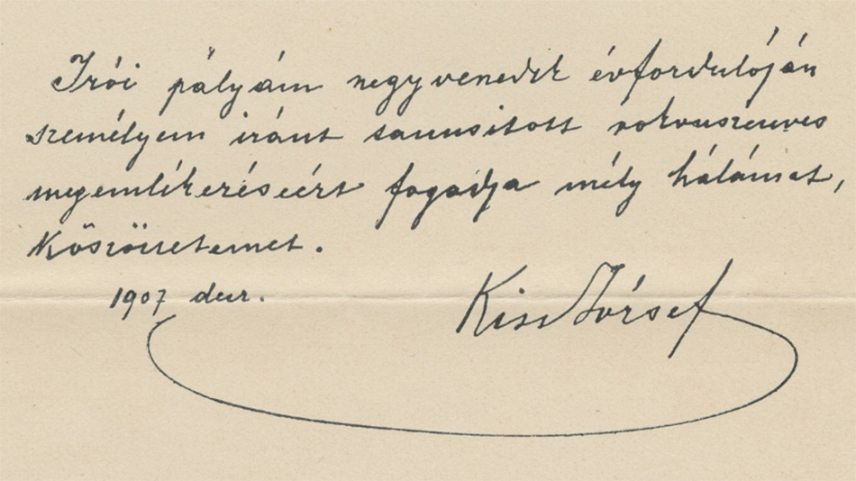 Irói pályám negyvenedik évfordulóján
személyem iránt tanusitott rokonszenves
megemlékezéseért fogadja mély hálámat,
köszönetemet.
1907 decz.
Kiss József